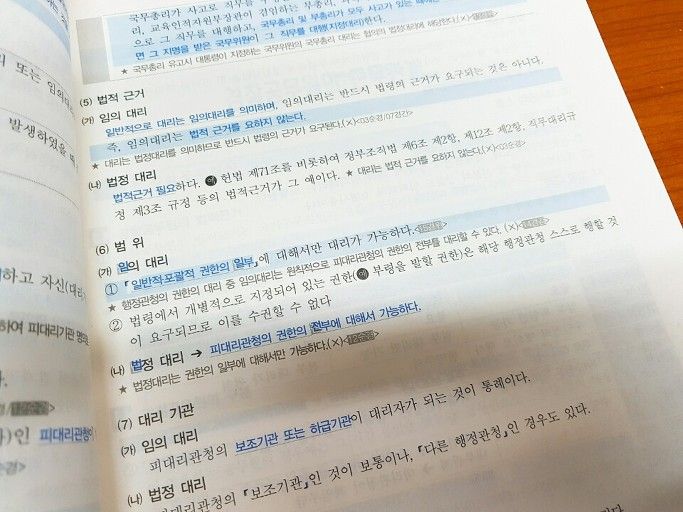 국무총리가 사고로 직무를
리, 교육인적자원부장관이 겸임하는 부총리,
으로 그 직무를 대행하고, 국무총리 및 부총리가 모두 사고가 있는 때에는
면 그 지명을 받은 국무위원이 그 직무를 대행(지정대리)한다.
★ 국무총리 유고시 대통령이 지정하는 국무위원의 국무총리 대리는 협의의 법정대리에 해당한다.(×)
(5) 법적 근거
(가) 임의 대리
일반적으로 대리는 임의대리를 의미하며, 임의대리는 반드시 법령의 근거가 요구되는 것은 아니다.
즉, 임의대리는 법적 근거를 요하지 않는다.
★ 대리는 법정대리를 의미하므로 반드시 법령의 근거가 요구된다.(×)<03순경/07간간>
(나) 법정 대리
법적근거 필요하다. 예 헌법 제71조를 비롯하여 정부조직법 제6조 제2항, 제12조 제2항, 직무대리규
정 제3조 규정 등의 법적근거가 그 예이다. ★ 대리는 법적 근거를 요하지 않는다.(×)<03순경>
(6) 범 위
(가) 임의 대리
① 「일반적·포괄적 권한의 일부」에 대해서만 대리가 가능하다.
★ 행정관청의 권한의 대리 중 임의대리는 원칙적으로 피대리관청의 권한의 전부를 대리할 수 있다. (×)
② 법령에서 개별적으로 지정되어 있는 권한(예 부령을 발할 권한)은 해당 행정관청 스스로 행할 것
이 요구되므로 이를 수권할 수 없다
(나) 법정 대리 → 피대리관청의 권한의 전부에 대해서 가능하다.
★ 법정대리는 권한의 일부에 대해서만 가능하다.(×)
(7) 대리 기관
(가) 임의 대리
피대리관청의 보조기관 또는 하급기관이 대리자가 되는 것이 통례이다.
(나) 법정 대리
피대리관청의 「보조기관」인 것이 보통이나, 「다른 행정관청」인 경우도 있다.
또는 임의
발생하였을 때
하고 자신(대리
하여 피대리기관 명의
인 피대리관청